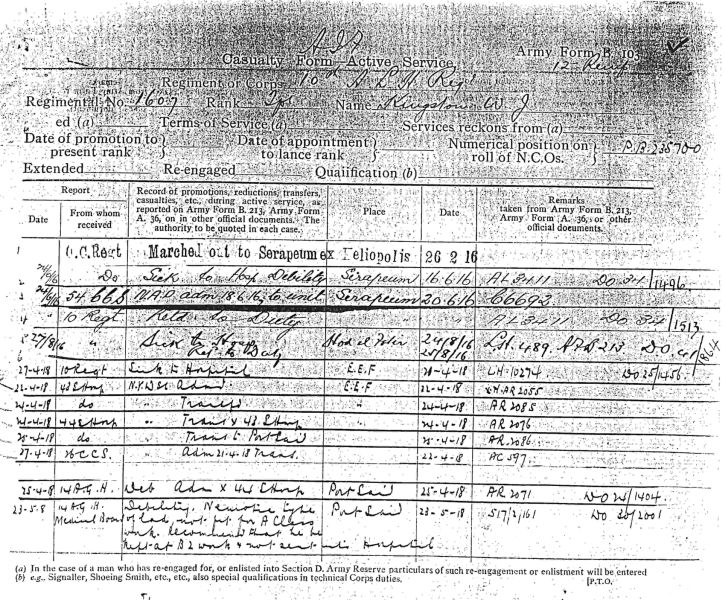 A.I.F.
Casualty Form—Active Service.
Army Form B. 103
Regiment or Corps 10th A L H Regt
Regimental No. 1607 Rank Tpr Name Kingston W. J
ed (a) Terms of Service (a) Services reckons from (a)
Date of promotion to present rank } Date of appointment to lance rank } Numerical position on roll of N.C.Os. }
Extended Re-engaged Qualification (b)
Report
Date From whom received
Record of promotions, reductions, transfers, casualties, etc., during active service, as reported on Army Form B. 213, Army Form A. 36, or in other official documents. The authority to be quoted in each case.
Place
Date
Remarks taken from Army Form B. 213, Army Form A. 36, or other official documents.
1 O.C. Regt Marched out to Serapeum ex Heliopolis 26 2 16
2 Do Sick to Hosp Debility Serapeum 16.6.16 AL3411 DO 34/1496
3 adm 18.6.16 to unit Serapeum 20.6.16 66692
4 10 Regt Retd to Duty AL3411 DO 34/1513
5 27/8/16 " Sick to Hosp 24/8/16 L.H. 489 B 213 DO 41/1864
6 Ret to Duty 25/8/16
27-4-18 10 Regt Sick to Hospital E.E.F 20-4-18 LH 10274 DO 25/1456
22-4-18 Adm E.E.F 22-4-18 AR 2055
24-4-18 do " Transfd 24-4-18 AR 2085
24-4-18 44 S Hosp " Trans x 43 S Hosp 24-4-18 AR 2076
25-4-18 do " Trans to Port Said 25-4-18 AR 2086
27-4-18 26 C.C.S. " Adm 21-4-18 Trans. 22-4-18 AC 597
25-4-8 14 A.G.H. Deb Adm x 44 S Hosp Port Said 25-4-18 AR 2071 DO 25/1404
23-5-8 14 A.G.H. Medical Board Debility. Neurotic type of lad, not fit for A Class work. Recommend that he be kept at B2 work & not sent into Hospital Port Said 23-5-18 S17/2/161 DO 30/2001
(a) In the case of a man who has re-engaged for, or enlisted into Section D. Army Reserve particulars of such re-engagement or enlistment will be entered
(b) e.g., Signaller, Shoeing Smith, etc., etc., also special qualifications in technical Corps duties. [P.T.O.